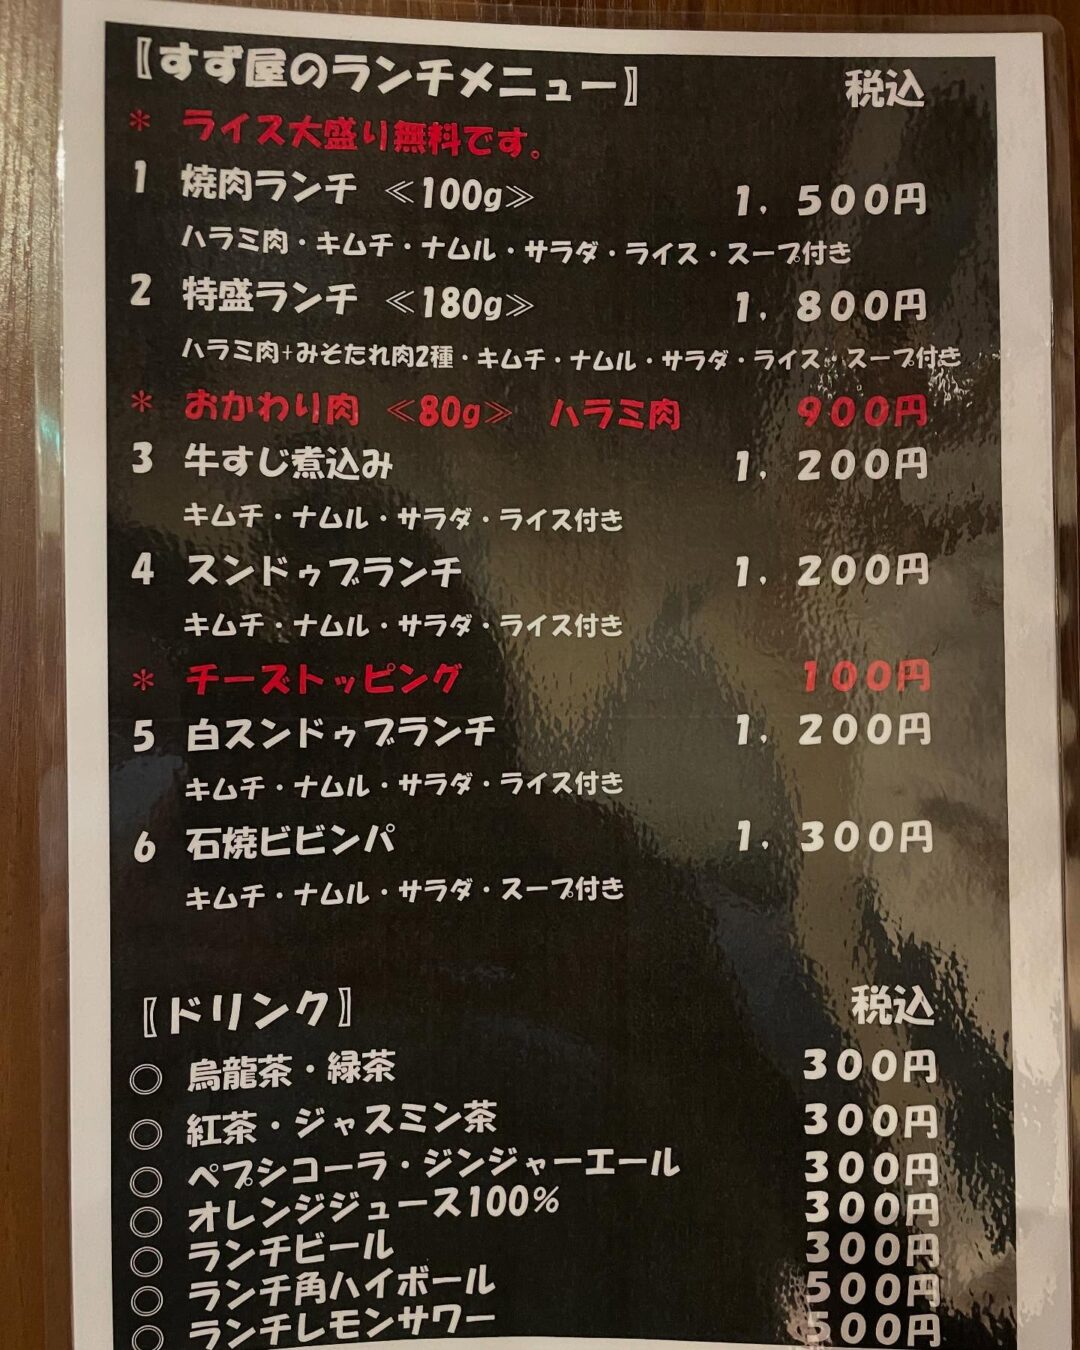 〖すず屋のランチメニュー〗 税込
＊ ライス大盛り無料です。
1 焼肉ランチ ≪100g≫ 1，500円
ハラミ肉・キムチ・ナムル・サラダ・ライス・スープ付き
2 特盛ランチ ≪180g≫ 1，800円
ハラミ肉+みそたれ肉2種・キムチ・ナムル・サラダ・ライス・スープ付き
＊ おかわり肉 ≪80g≫ ハラミ肉 900円
3 牛すじ煮込み 1，200円
キムチ・ナムル・サラダ・ライス付き
4 スンドゥブランチ 1，200円
キムチ・ナムル・サラダ・ライス付き
＊ チーズトッピング 100円
5 白スンドゥブランチ 1，200円
キムチ・ナムル・サラダ・ライス付き
6 石焼ビビンパ 1，300円
キムチ・ナムル・サラダ・スープ付き
〖ドリンク〗 税込
◎ 烏龍茶・緑茶 300円
◎ 紅茶・ジャスミン茶 300円
◎ ペプシコーラ・ジンジャーエール 300円
◎ オレンジジュース100% 300円
◎ ランチビール 300円
◎ ランチ角ハイボール 500円
◎ ランチレモンサワー 500円